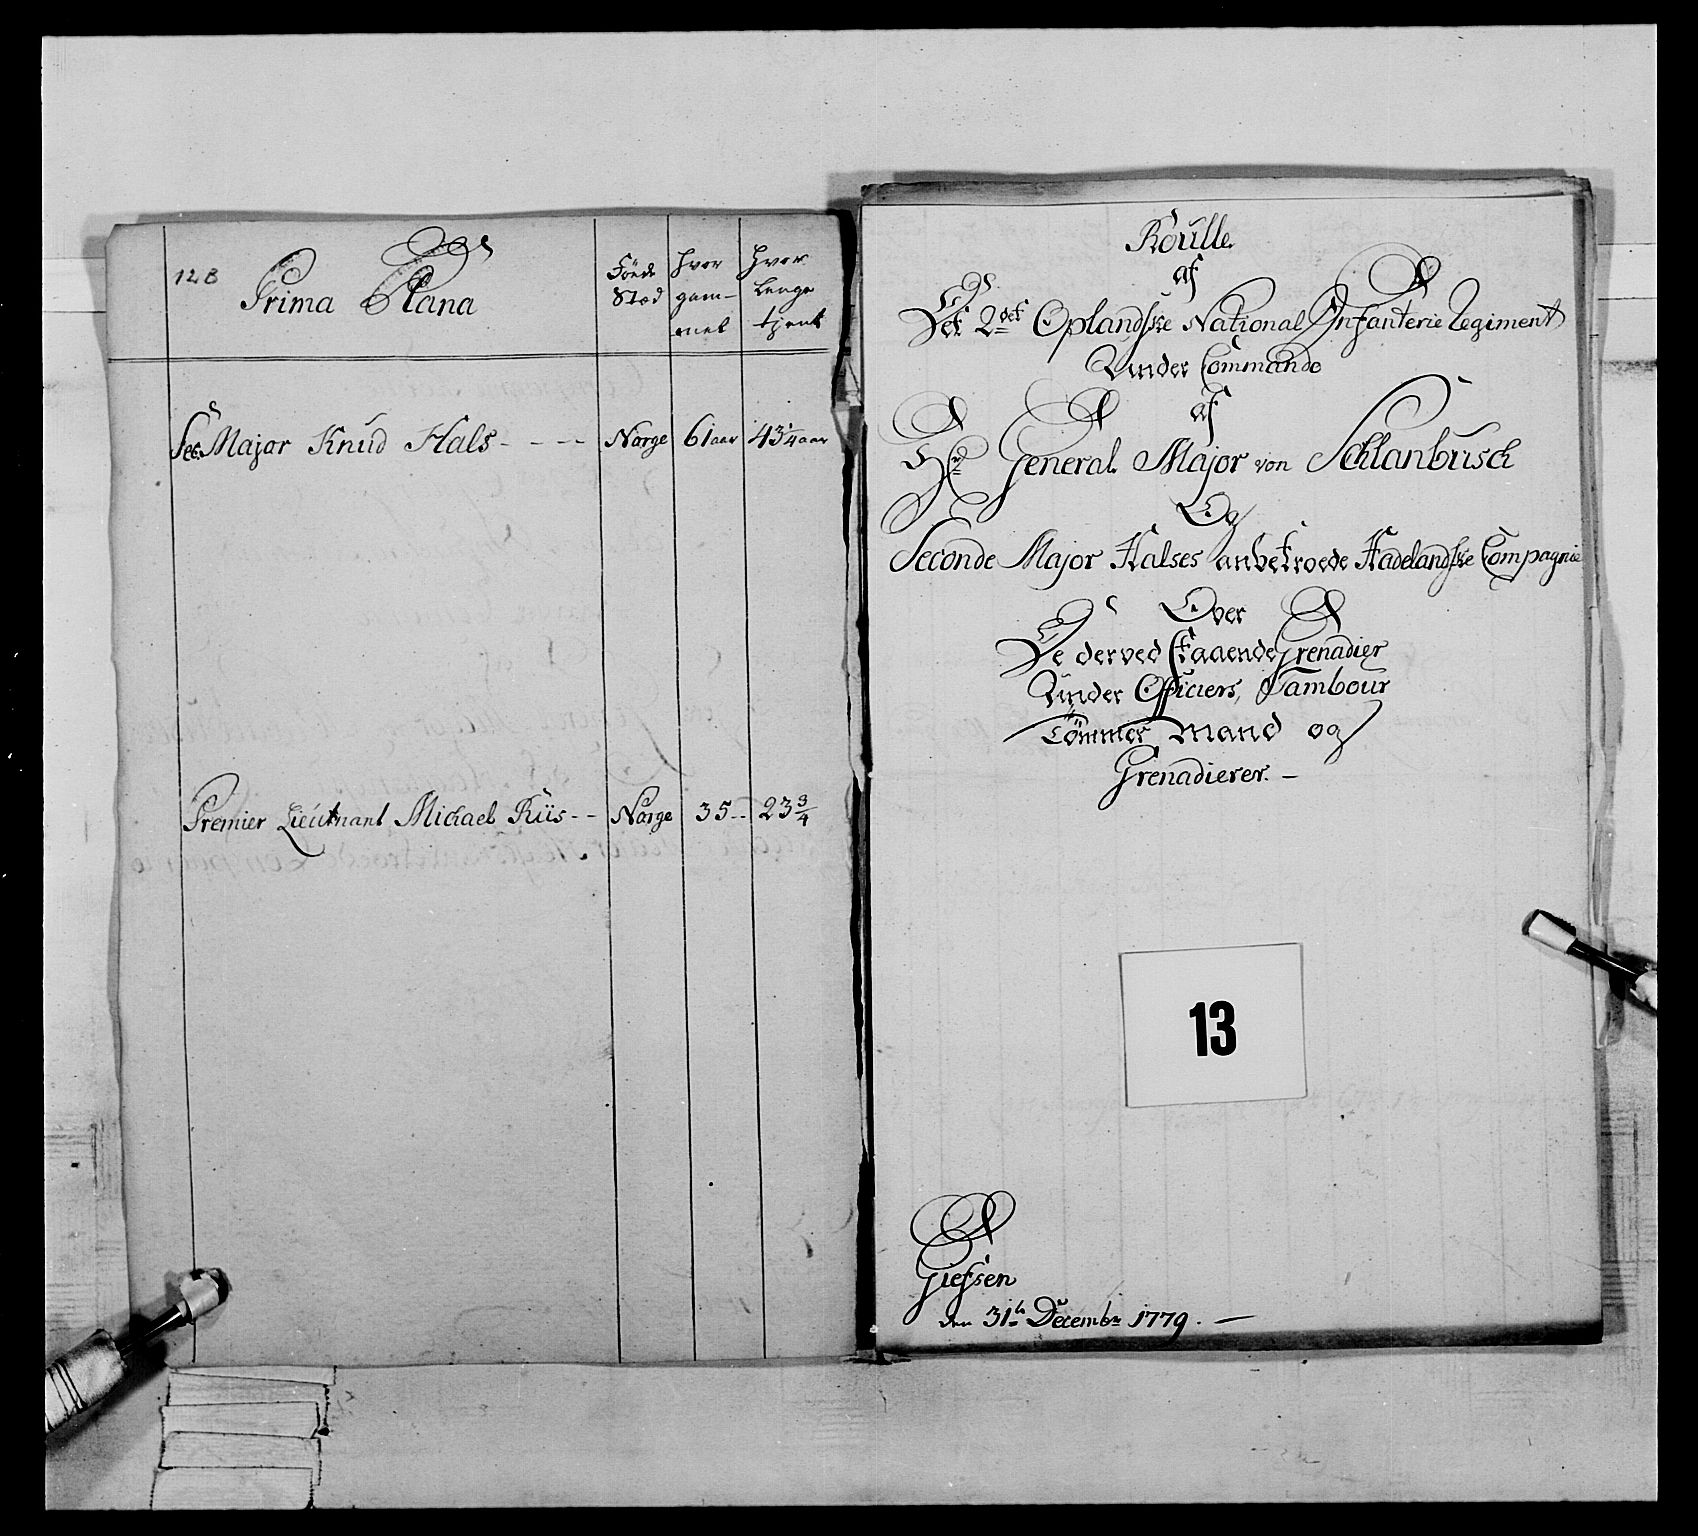 128
Prima Plana
Föede Stad
hvor gam-
mel
hvor lenge tjent
Sec: Major Knud Hals - - - - Norge 61 aar 43 1/4 aar
Premier Lieutnant Michael Riis - - Norge 35 - - 23 3/4
Roulle
af
Det 2det Oplandske National Infanterie Regiment
Under Commando
af
Hr General Major von Schlanbusch
Og
Seconde Major Halses anbetroede Hadelandske Compagnie
Over
De derved staaende Grenadier
Under Officiers, Tambour
Tömmer mand og
Grenadierer. -
13
Giefsen
den 31te Decembr 1779. -